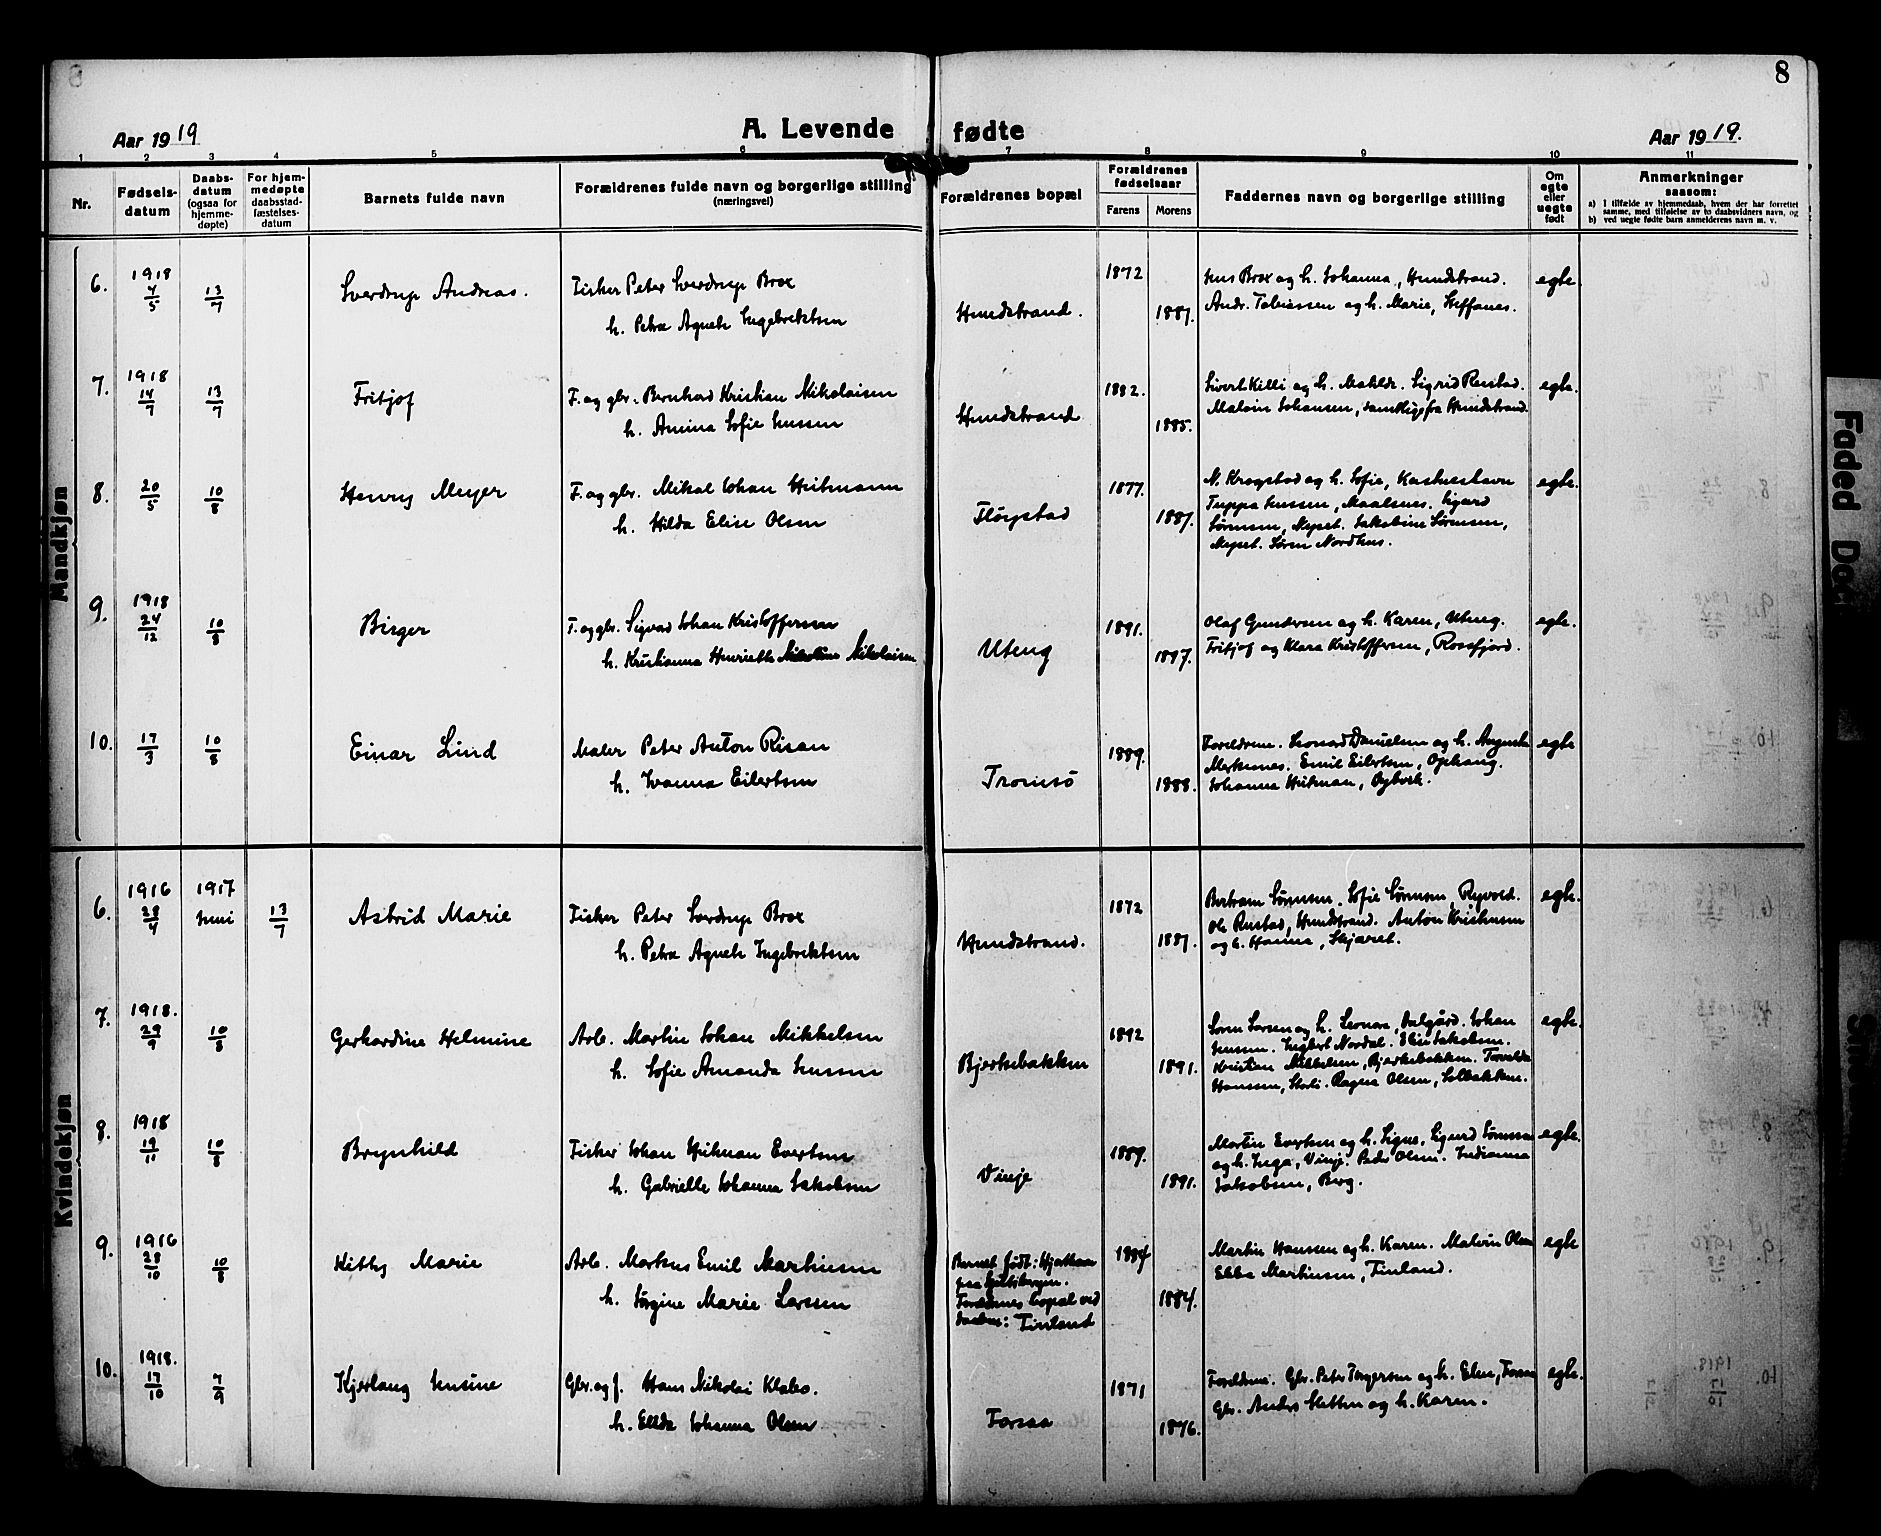 8
Aar 1919
A. Levende fødte
Aar 1919.
1 2 3 4 5 6 7 8 9 10 11
Nr.
Fødselsdatum
Daabsdatum (ogsaa for hjemmedøpte)
For hjemmedøpte daabsstadfæstelsesdatum
Barnets fulde navn
Forældrenes fulde navn og borgerlige stilling
(næringsvei)
Forældrenes bopæl
Forældrenes fødselsaar
Farens
Morens
Faddernes navn og borgerlige stilling
Om egte eller uegte født
Anmerkninger
saasom:
a) I tilfælde av hjemmedaab, hvem der har forrettet
samme, med tilføielse av to daabsvidners navn, og
b) ved uegte fødte barn anmelderens navn m. v.
Mandkjøn
6. 1918 4/5 13/7 Sverdrup Andreas.
Fisker Peter Sverdrup Brox
h. Petra Agnete Ingebrektsen
Hundstrand.
1872
1887.
Jens Brox og h. Johanna, Hundstrand.
Andr. Tobiassen og h. Marie, Steffanes.
egte.
7. 1918 14/7 13/7 Fritjof
F. og gbr. Bernhard Kristian Nikolaisen
h. Amina Sofie Jensen
Hundstrand
1882.
1885.
Sivert Killi og h. Matilde. Sigrid Rustad.
Malvin Johansen, samtlige fra Hundstrand.
egte.
8. 20/5 10/8 Henry Meyer
F. og gbr. Mikal Johan Heitmann
h. Hilda Elise Olsen
Fløystad
1877.
1887.
N. Krogstad og h. Sofie,
Jensen, Maalsnes.
Sørensen, Nyset. Jakobine Sørensen,
Nyset. Søren Nordhus.
egte.
9. 1918 24/12 10/8 Birger
F. og gbr. Sigvad Johan Kristoffersen
h. Kristianna Henriette Nikolaisen
Uteng
1891.
1897.
Olaf Gundersen og h. Karen, Uteng.
Fritjof og Klara Kristoffersen, Rossfjord.
egte.
10. 17/3 10/8 Einar Lind
Maler Peter Anton Risan
h. Ivanna Eilertsen
Tromsö
1889.
1888.
Foreldrene. Leonard Danielsen og h. Augusta
Emil Eilertsen,
Johanna Heitman,
egte
Kvindekjøn
6. 1916 28/4 1917 Juni 13/7 Astrid Marie
Fisker Peter Sverdrup Brox
h. Petra Agnete Ingebrektsen
Hundstrand.
1872
1887.
Bertram Sørensen. Sofie Sørensen, Ryvold.
Ole Rustad, Hundstrand. Anton Kristensen
og h. Hanna, Skjaret.
egte.
7. 1918. 29/9 10/8 Gerhardine Helmine
Arb. Martin Johan Mikkelsen
h. Sofie Amanda Jensen
Bjerkebakken
1892
1891.
Søren Larsen og h. Leonora, Dalgård. Johan
Jensen. Ingbert Nordal. Elise Jakobsen.
Kristian Mikkelsen, Bjerkebakken. Torvalda
Hanssen, Storli. Ragna Olsen, Solbakken.
egte.
8. 1918 19/11 10/8 Brynhild
Fisker Johan Heitman Evertsen
h. Gabrielle Johanna Jakobsen
Vinje
1889.
1891.
Martin Evertsen og h. Signe, Sigurd Sørensen
og h. Inga, Vinje. Peder Olsen. Indianna
Jakobsen, Berg.
egte.
9. 1916 28/10 10/8 Kitty Marie
Arb. Markus Emil Martinsen
h. Jørgine Marie Larsen
Barnet født: Hjorthavn
paa Spitsbergen.
Foreldrenes bopæl ved
daaben: Finland
1884
1884.
Martin Hansen og h. Karen. Malvin Olsen
Ebba Martinsen, Finland.
egte
10. 1918. 17/10 7/9 Kjerlaug Jensine
Gbr. og f. Hans Nikolai Klabo.
h. Ellda Johanna Olsen
Forsaa
1871
1876.
Foreldrene. Gbr. Peter Torgersen og h. Elen, Forsaa
Gbr. Anders Sletten og h. Karen.
egte.
Faded Do